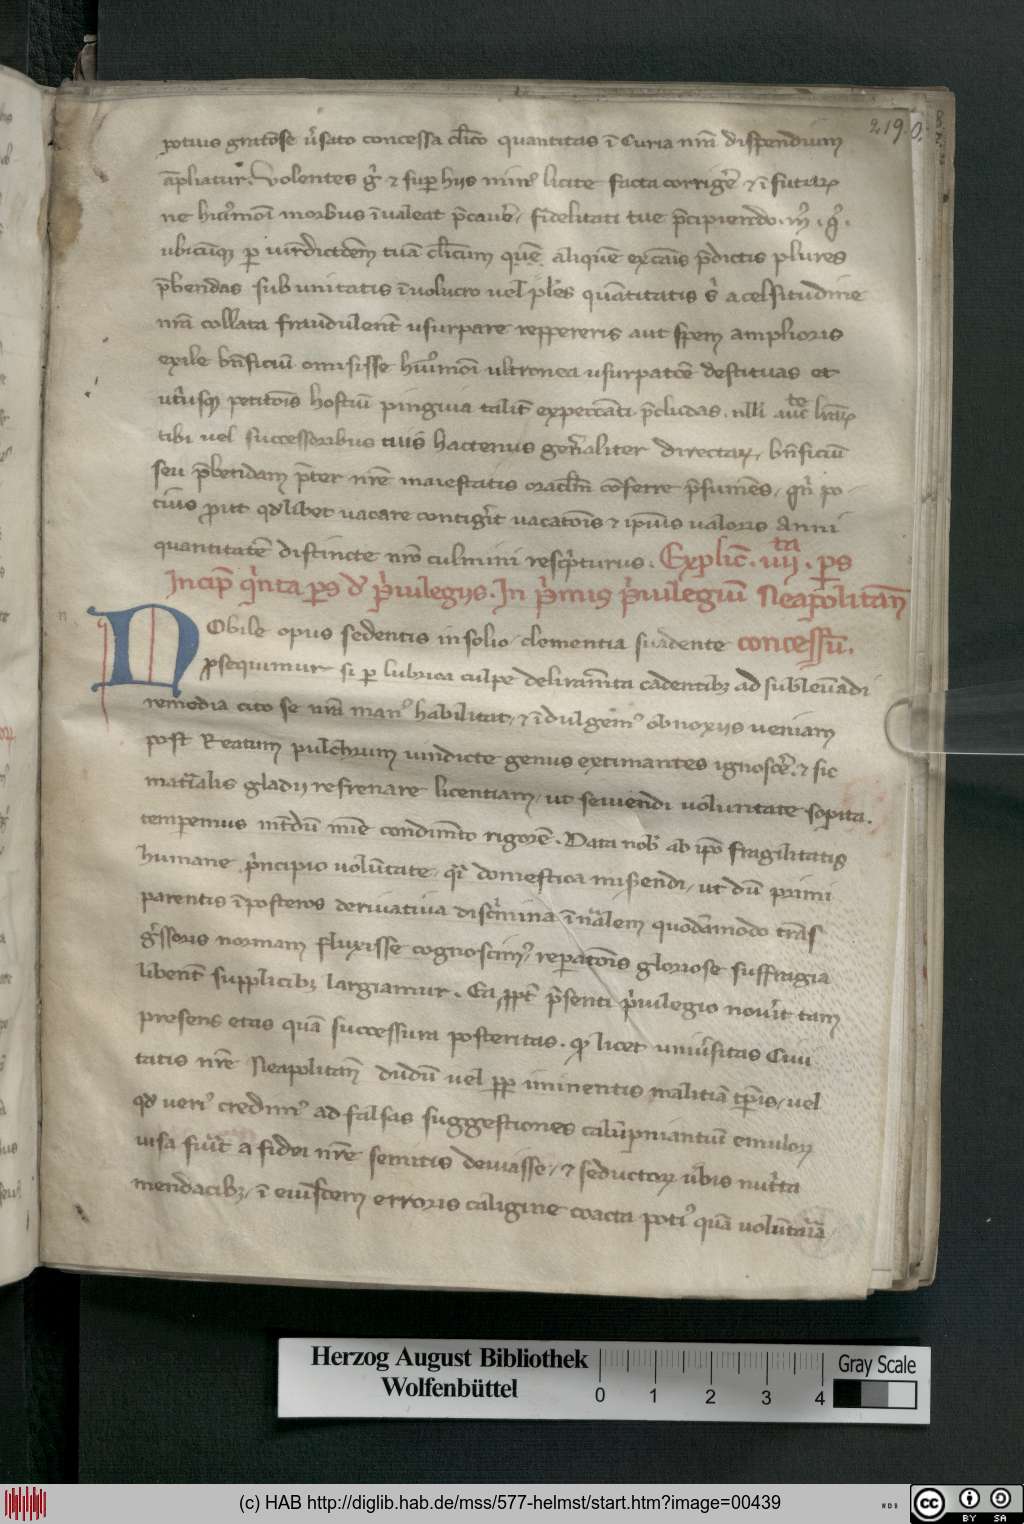 219.
potius gratōse v̉sato concessa cl̄ico quantitas ī Curia nr̄a dispendium
āpliatur. Volentes g̉ & sup hijs minꝰ licite facta corrigēr & ī futuꝝ
ne huiꝰmōi morbus īualeat p̄caueri fidelitati tue p̄cipiendo
ubicūqꝫ ꝑ iurisdictōem tuā cl̄icum quē aliquē ex cāis p̄dictis plures
p̄bendas sub unitatis īuolucro vel plēs quātitatis a celsitudine
nrā collata fraudulent̄ usurpare reppereris aut spem amplioris
exile bn̄ficiū omisisse huiꝰmōi ultronea usurpatōe destituas et
utriusqꝫ petitōis hostiū pinguia talit̄ expectāti p̄cludas. nlli auctē lrāꝝ
tibi vel successoribus tuis hactenus gen̄aliter directaꝝ, bn̄ficiū
seu p̄bendam p̄ter nr̄e maiestatis oraclm̄ cōferre p̄sumēs, qn̄ po
cius prout qdlibet vacare contigerit vacatōis & ipius valoris anni
quantitatē distincte nr̄o culmini rescripturus. Explic̄. iiijta. ps
Incip̄ qnta ps d̄ priuilegijs. In primis priuilegiū Neapolitan̄
Nobile opus sedentis in solio, clementia suadente concessū.
ꝓsequimur si ꝑ lubrica culpe deliramēta cadentibꝫ ad subleuādi
remedia cito se nr̄a manꝰ habilitat, & īdulgemꝰ obnoxijs veniam
post Reatum pulchrum vindicte genus extimantes ignoscēr. & sic
mat̄ialis gladij refrenare licentiam, ut seuiendi voluntate sopita.
tempemus mēdū mīe condimēto rigorē. Data nobꝫ ab ipō fragilitatis
humane principio volūtate, qr̄ domestica miserendi, ut dū primi
parentis ī posteros deriuatiua discrimina ī nālem quodāmodo trāns
gressoris normam fluxisse cognoscimꝰ, reparatōis gloriose suffragia
libent̄ supplicibꝫ largiamur. Ea ppt̄ p̄senti priuilegio nouerit tam
presens etas quā successura posteritas. qꝫ licet uniūsitas Ciui
tatis nr̄e Neapolitan̄ dudū vel ꝓp īminentis malitiā tp̄is, vel
qd veriꝰ credimꝰ ad falsas suggestiones calūpniantiū emuloꝝ
uisa fuerit a fidei nr̄e semitis deuiasse, & seductoꝝ ūbis nutrita
mendacibꝫ, ī eiusdem erroris caligine coacta potiꝰ quā volūtaria
Herzog August Bibliothek
Wolfenbüttel
0 1 2 3 4
Gray Scale
(c) HAB http://diglib.hab.de/mss/577-helmst/start.htm?image=00439
WDB
cc BY SA